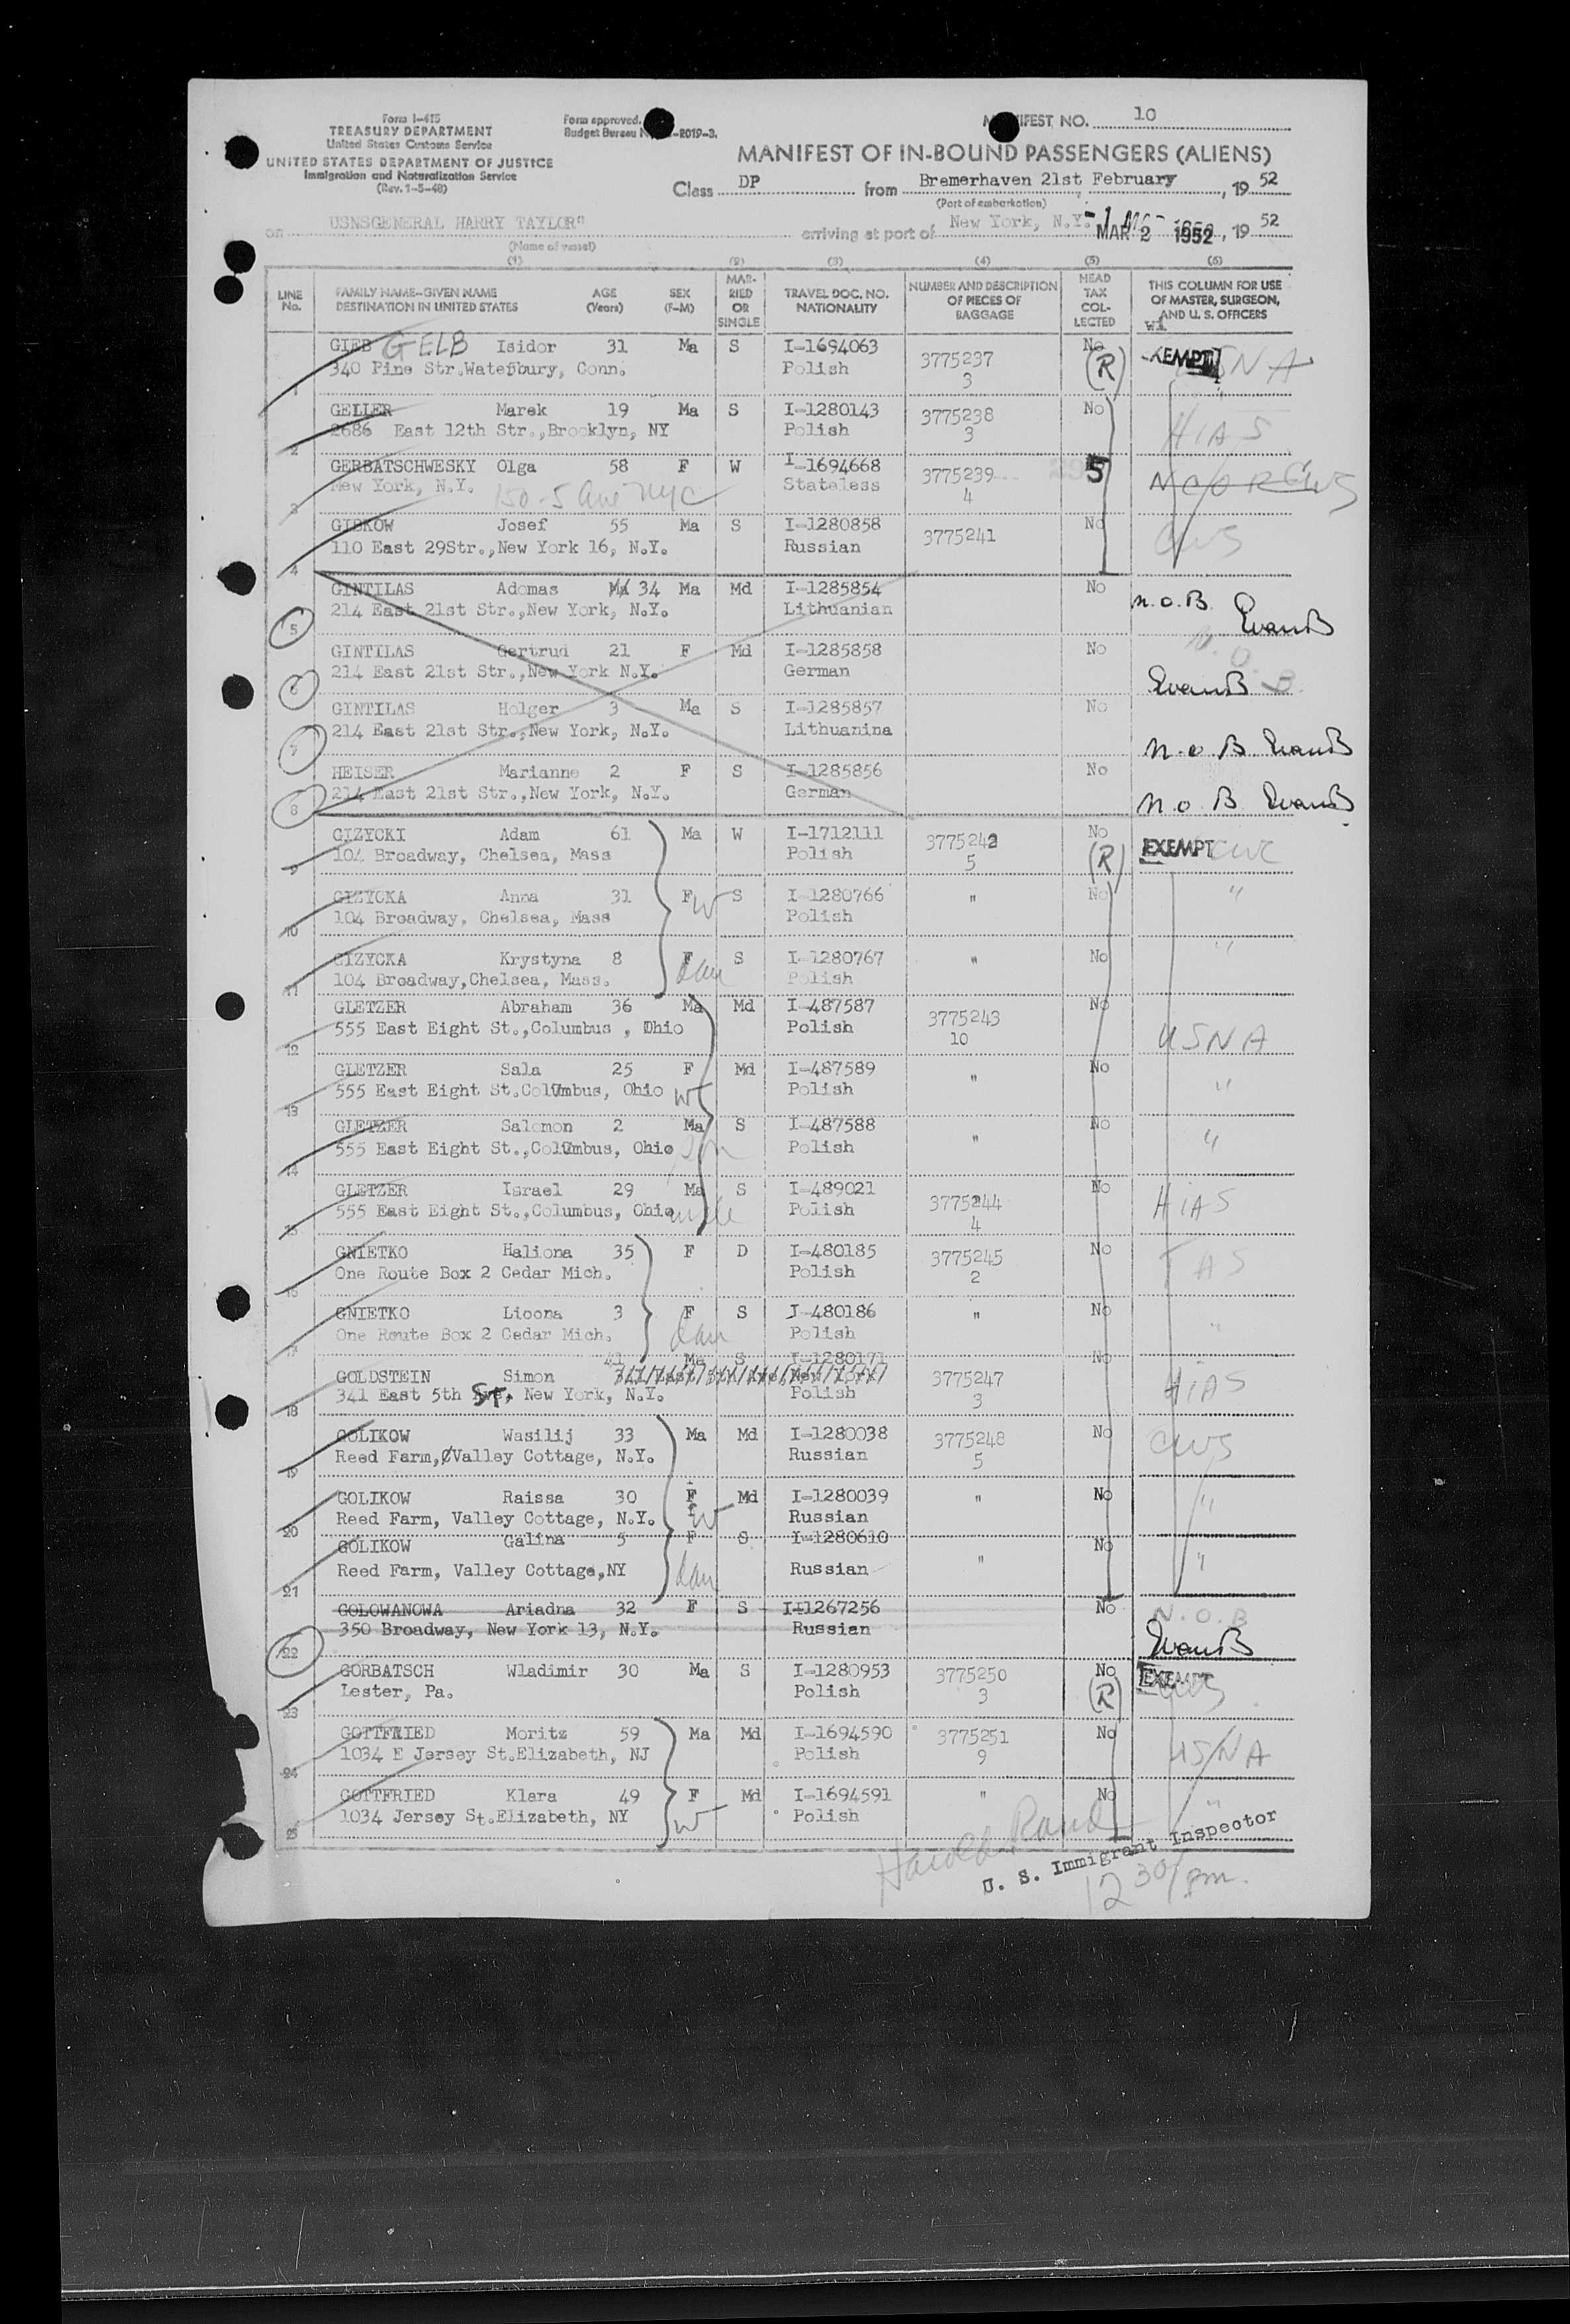 Form I-415
TREASURY DEPARTMENT
United States Customs Service
UNITED STATES DEPARTMENT OF JUSTICE
Immigration and Naturalization Service
(Rev. 1-5-48)
Form approved.
Budget Bureau -2019-3.
MANIFEST NO. 10
MANIFEST OF IN-BOUND PASSENGERS (ALIENS)
Class DP from Bremerhaven 21st February, 19 52
(Port of embarkation)
on USNSGENERAL HARRY TAYLOR" arriving at port of New York, N.Y. MAR 2 1952, 19 52
(Name of vessel)
(1) (2) (3) (4) (5) (6)
LINE No. FAMILY NAME-GIVEN NAME DESTINATION IN UNITED STATES AGE (Years) SEX (F-M) MARRIED OR SINGLE TRAVEL DOC. NO. NATIONALITY NUMBER AND DESCRIPTION OF PIECES OF BAGGAGE HEAD TAX COLLECTED THIS COLUMN FOR USE OF MASTER, SURGEON, AND U. S. OFFICERS
GIEB GELB Isidor 31 Ma S I-1694063 3775237 No EXEMPT USNA
1 340 Pine Str.Waterbury, Conn. Polish 3 (R)
GELLER Marek 19 Ma S I-1280143 3775238 No HIAS
2 2686 East 12th Str.,Brooklyn, NY Polish 3
GERBATSCHWESKY Olga 58 F W I-1694668 3775239 5 CWS
3 New York, N.Y. 150-5 ave NYC Stateless 4
GIBKOW Josef 55 Ma S I-1280858 3775241 No CWS
4 110 East 29Str.,New York 16, N.Y. Russian
GINTILAS Adomas 34 Ma Md I-1285854 No n.o.B.
5 214 East 21st Str.,New York, N.Y. Lithuanian EvansB
GINTILAS Gertrud 21 F Md I-1285858 No N.O.B.
6 214 East 21st Str.,New York N.Y. German EvansB
GINTILAS Holger 3 Ma S I-1285857 No
7 214 East 21st Str.,New York, N.Y. Lithuanina n.o.B EvansB
HEISER Marianne 2 F S I-1285856 No
8 214 East 21st Str.,New York, N.Y. German n.o.B EvansB
GIZYCKI Adam 61 Ma W I-1712111 3775242 No EXEMPT
9 104 Broadway, Chelsea, Mass Polish 5 (R)
GIZYCKA Anna 31 F W S I-1280766 " No "
10 104 Broadway, Chelsea, Mass Polish
GIZYCKA Krystyna 8 F dau S I-1280767 " No "
11 104 Broadway,Chelsea, Mass. Polish
GLETZER Abraham 36 Ma Md I-487587 3775243 No
12 555 East Eight St.,Columbus , Ohio Polish 10 USNA
GLETZER Sala 25 F Md I-487589 " No "
13 555 East Eight St.Columbus, Ohio W Polish
GLETZER Salomon 2 Ma S I-487588 " No "
14 555 East Eight St.,Columbus, Ohio Polish
GLETZER Israel 29 Ma S I-489021 3775244 No HIAS
15 555 East Eight St.,Columbus, Ohio uncle Polish 4
GNIETKO Haliona 35 F D I-480185 3775245 No
16 One Route Box 2 Cedar Mich. Polish 2
GNIETKO Lioona 3 F dau S I-480186 " No "
17 One Route Box 2 Cedar Mich. Polish
41 Ma S I-1280171 No
GOLDSTEIN Simon 3775247 HIAS
18 341 East 5th ST, New York, N.Y. Polish 3
GOLIKOW Wasilij 33 Ma Md I-1280038 3775248 No CWS
19 Reed Farm, Valley Cottage, N.Y. Russian 5
GOLIKOW Raissa 30 F Md I-1280039 " No "
20 Reed Farm, Valley Cottage, N.Y. W Russian
GOLIKOW Galina 5 F S I-1280610 No
21 Reed Farm, Valley Cottage,NY dau Russian " "
GOLOWANOWA Ariadna 32 F S II1267256 No N.O.B
22 350 Broadway, New York 13, N.Y. Russian EvansB
GORBATSCH Wladimir 30 Ma S I-1280953 3775250 No EXEMPT
23 Lester, Pa. Polish 3 (R) CWS
GOTTFRIED Moritz 59 Ma Md I-1694590 3775251 No
24 1034 E Jersey St.Elizabeth, NJ Polish 9 USNA
GOTTFRIED Klara 49 F Md I-1694591 " No "
25 1034 Jersey St.Elizabeth, NY W Polish
Harold Rand
U. S. Immigrant Inspector
12 30/pm.